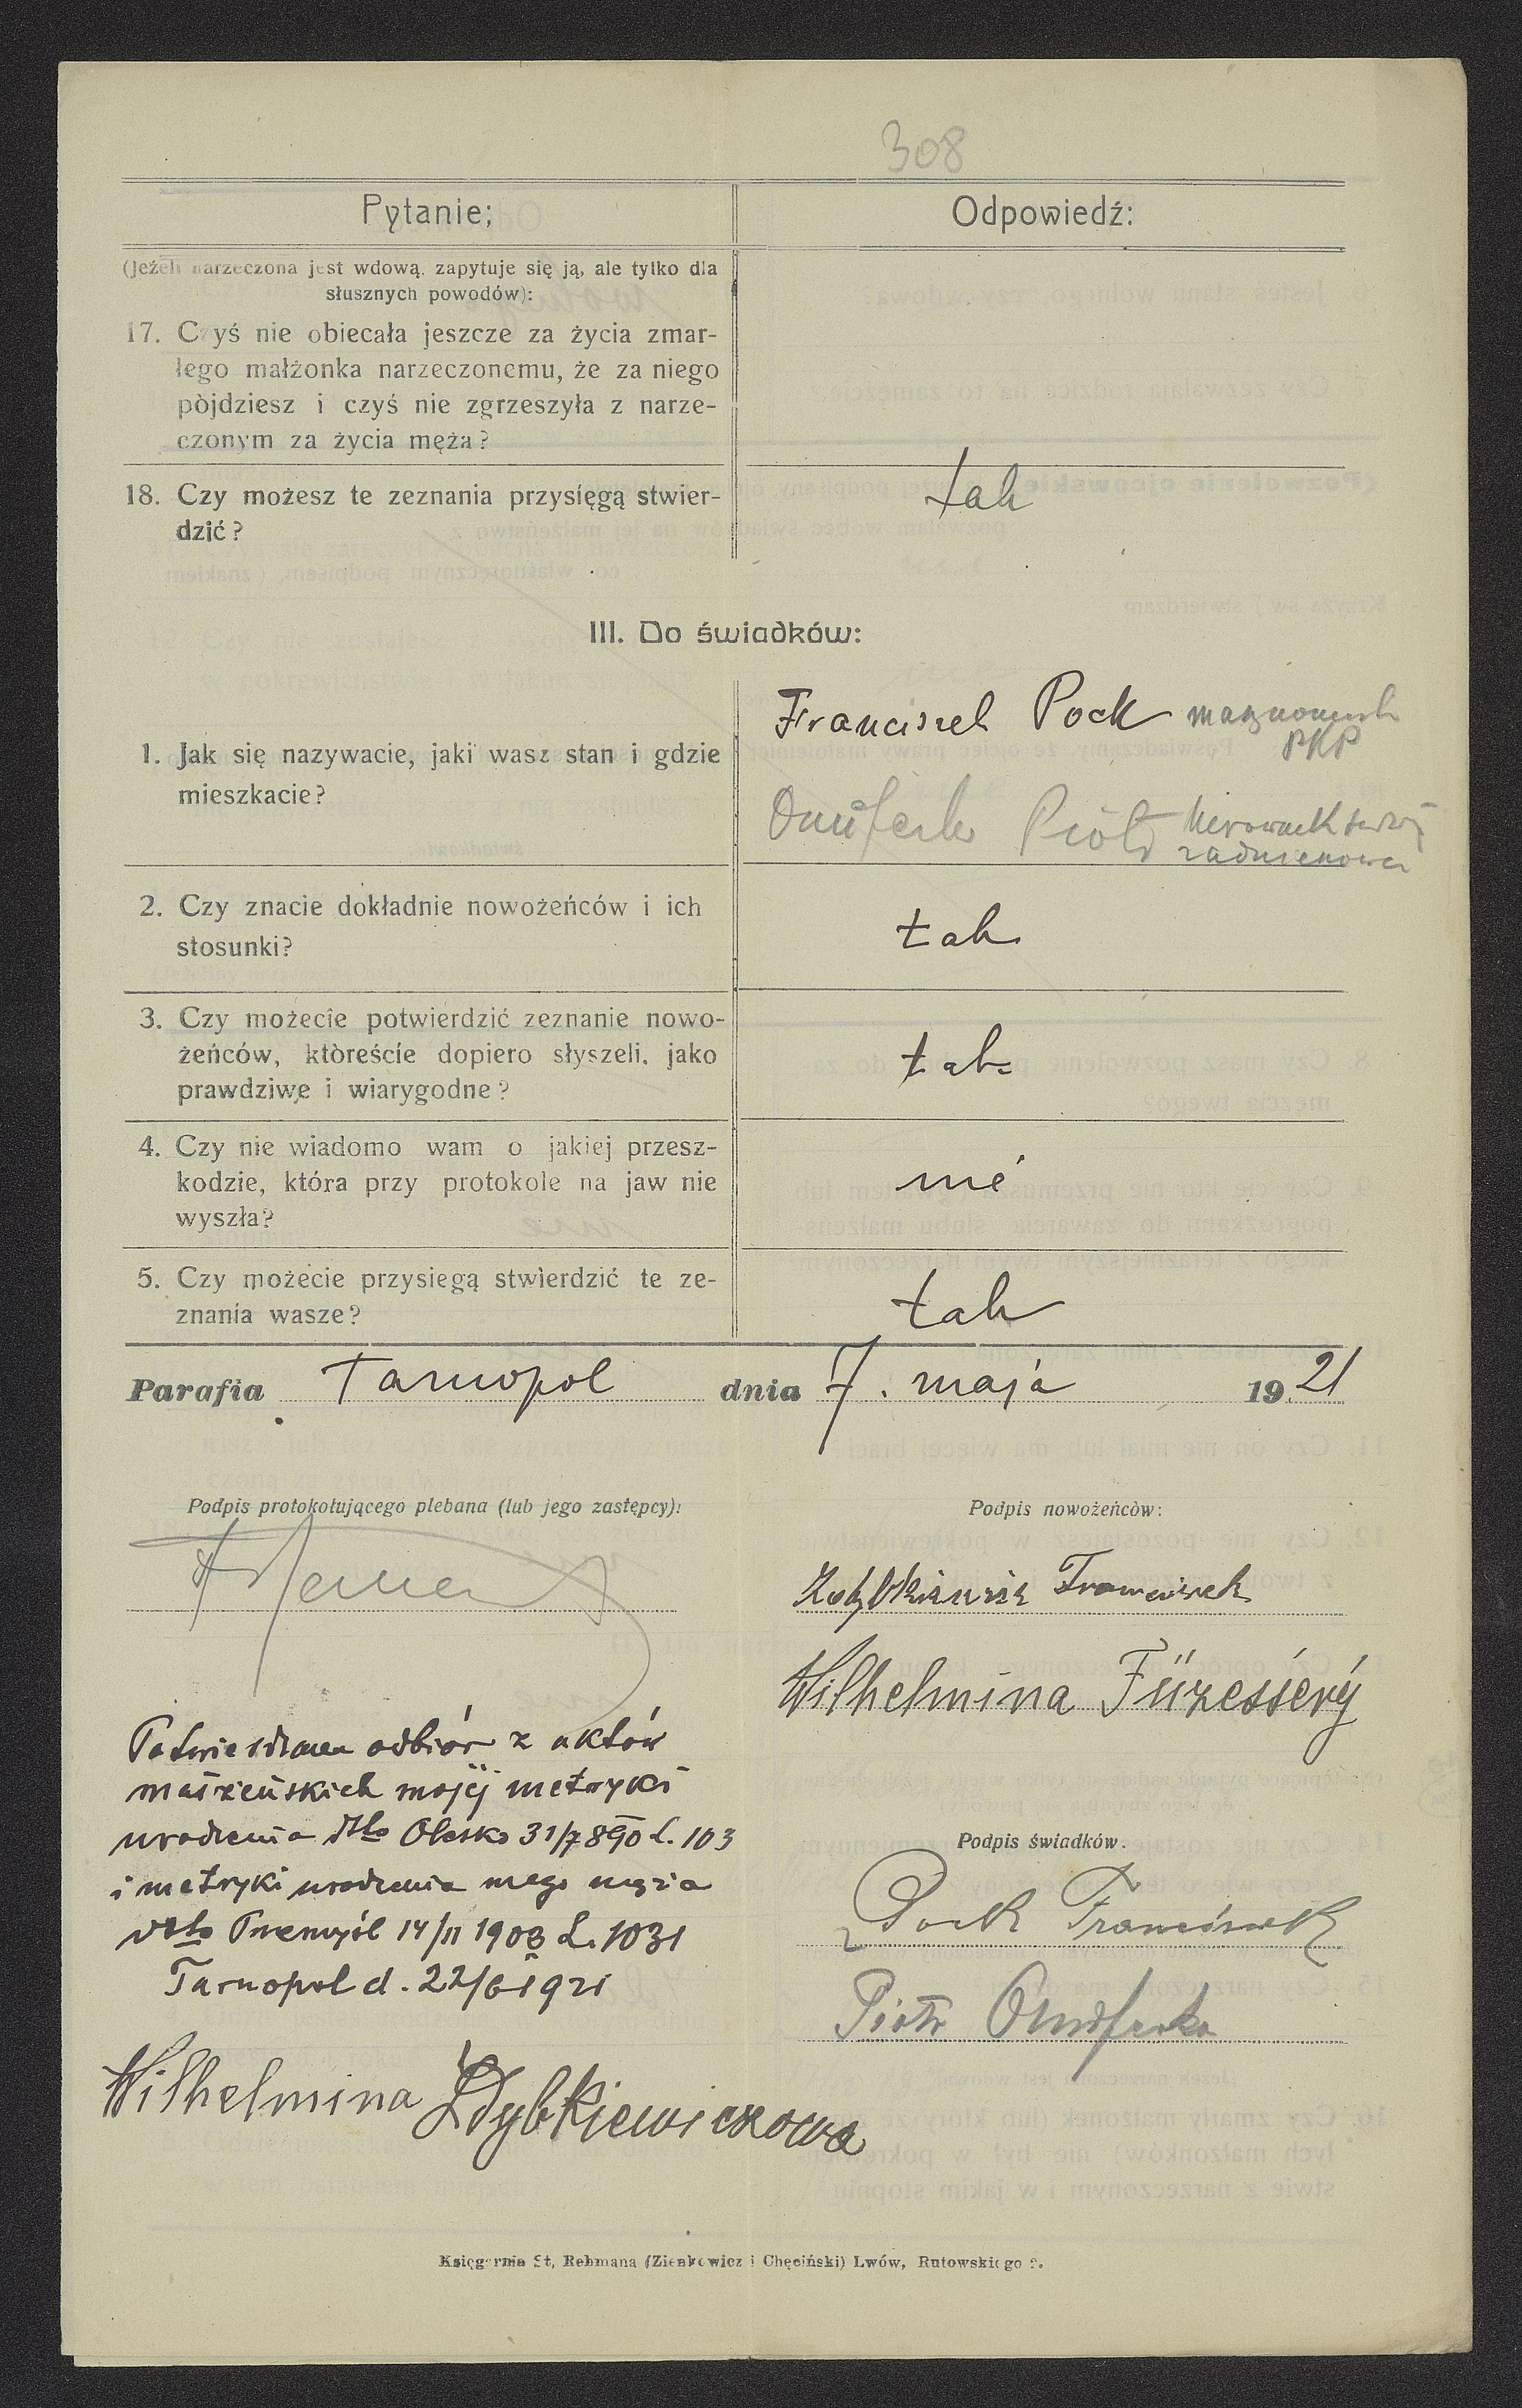 308
Pytanie;
Odpowiedź:
(Jeżeli narzeczona jest wdową. zapytuje się ją, ale tylko dla
słusznych powodów):
17. Czyś nie obiecała jeszcze za życia zmar-
łego małżonka narzeczonemu, że za niego
pòjdziesz i czyś nie zgrzeszyła z narze-
czonym za życia męża?
18. Czy możesz te zeznania przysięgą stwier-
dzić?
tak
III. Do świadków:
1. Jak się nazywacie, jaki wasz stan i gdzie
mieszkacie?
Franciszek Pock
PKP
Piotr
2. Czy znacie dokładnie nowożeńców i ich
stosunki?
tak
3. Czy możecie potwierdzić zeznanie nowo-
żeńców, któreście dopiero słyszeli, jako
prawdziwe i wiarygodne?
tak
4. Czy nie wiadomo wam o jakiej przesz-
kodzie, która przy protokole na jaw nie
wyszła?
nie
5. Czy możecie przysiegą stwierdzić te ze-
znania wasze?
tak
Parafia Tarnopol dnia 7. maja 1921
Podpis protokołującego plebana (lub jego zastępcy):
Podpis nowożeńcòw:
Franciszek
Wilhelmina Füzesséry
Potwierdzam odbiór z aktów
małżeńskich mojéj metryki
urodzenia dtto Olesko 31/7 890 L. 103
i metryki urodzenia mego męża
dtto Przemyśl 14/II 1908 L. 1031
Tarnopol d. 22/6 1921
Wilhelmina Zdybkiewiczowa
Podpis świadków.
Pock Franciszek
Piotr
Księgarnia St. Rehmana (Zienkowicz i Chęciński) Lwów, Rutowskiego